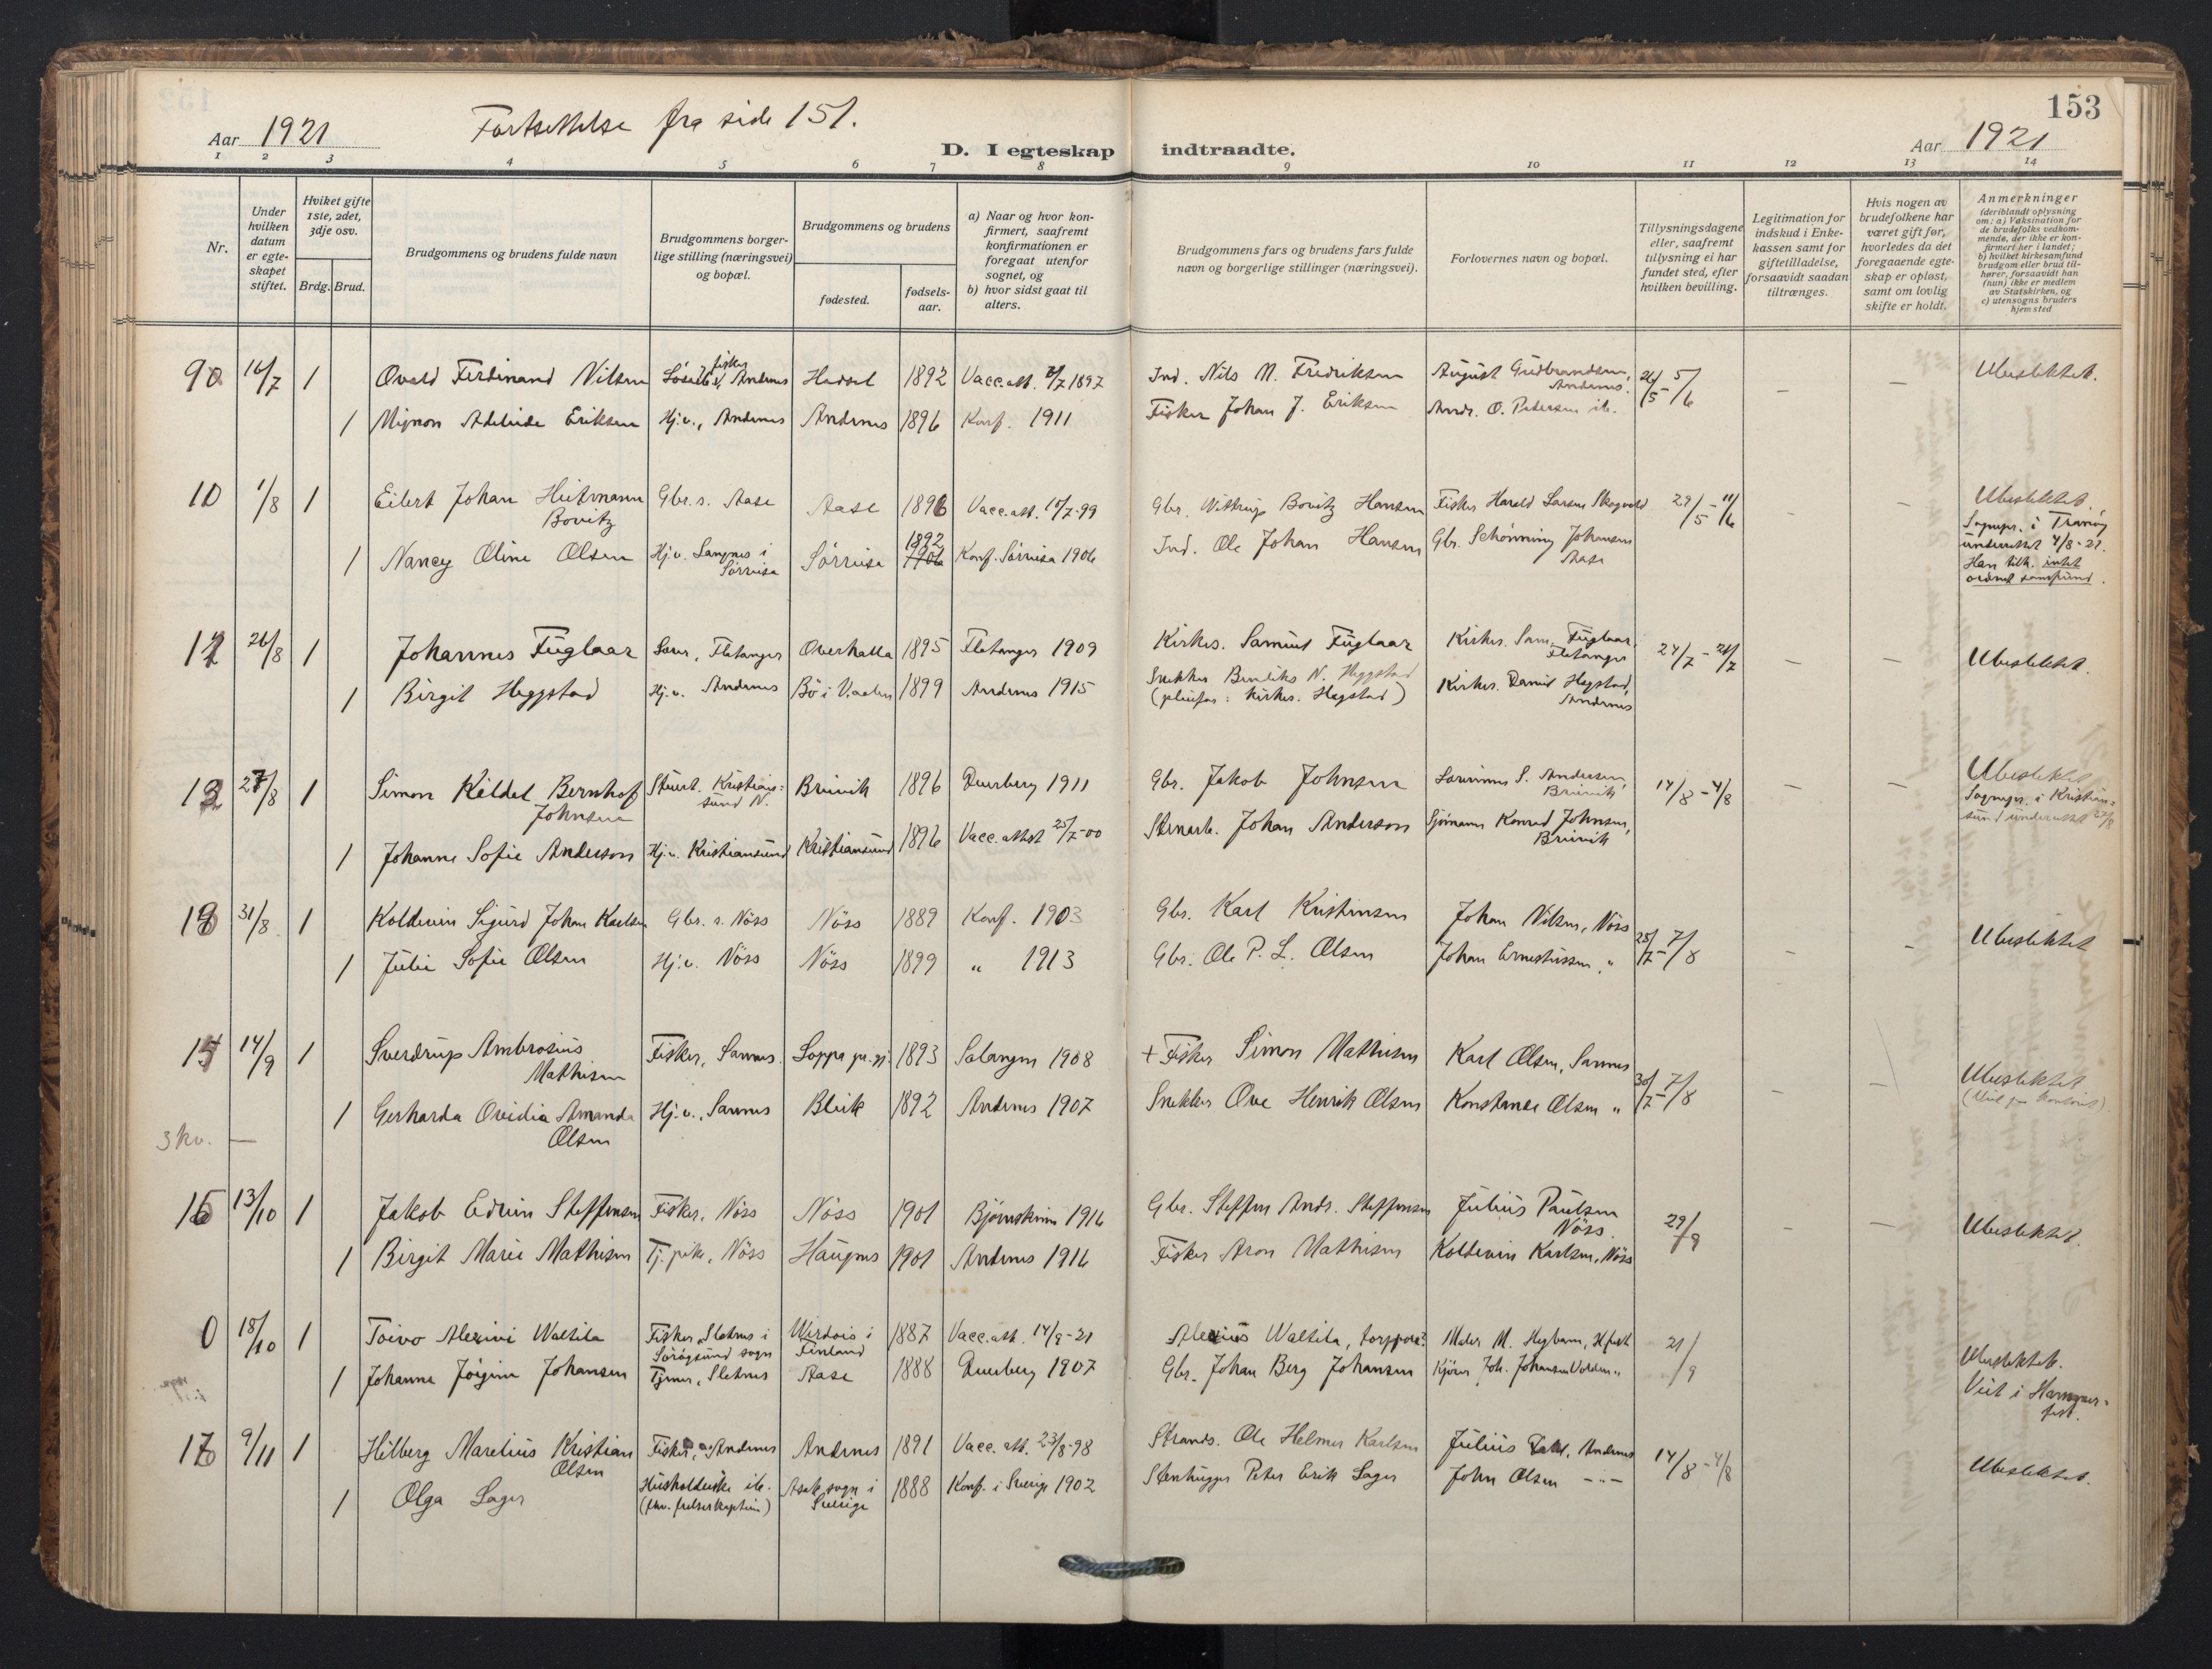 153
Aar 1921
Fortsettelse fra side 151.
D. I egteskap indtraadte.
Aar 1921
1 2 3 4 5 6 7 8 9 10 11 12 13 14
Nr.
Under hvilken datum er egteskapet stiftet.
Hviket gifte 1ste, 2det, 3dje osv.
Brdg. Brud.
Brudgommens og brudens fulde navn
Brudgommens borgerlige stilling (næringsvei) og bopæl.
Brudgommens og brudens
fødested.
fødselsaar.
a) Naar og hvor konfirmert, saafremt konfirmationen er foregaat utenfor sognet, og
b) hvor sidst gaat til alters.
Brudgommens fars og brudens fars fulde navn og borgerlige stillinger (næringsvei).
Forlovernes navn og bopæl.
Tillysningsdagene eller, saafremt tillysning ei har fundet sted, efter hvilken bevilling.
Legitimation for indskud i Enkekassen samt for giftetilladelse, forsaavidt saadan tiltrænges.
Hvis nogen av brudefolkene har været gift før, hvorledes da det foregaaende egteskap er opløst, samt om lovlig skifte er holdt.
Anmerkninger
(deriblandt oplysning om: a) Vaksination for de brudefolks vedkommende, der ikke er konfirmert her i landet; b) hvilket kirkesamfund brudgom eller brud tilhører, forsaavidt han (hun) ikke er medlem av Statskirken, og c) utensogns bruders hjemsted
9 16/7 1 Ovald Ferdinand Nilsen fisker Andenes Hadsel 1892 Vacc.att. 1897 Ind. Nils M. Fredriksen August Gudbrandsen, Andenes. 26/5 - 5/6 - - Ubeslektet.
1 Mignon Adeleide Eriksen Hj.v., Andenes Andenes 1896 Konf. 1911 Fisker Johan J. Eriksen Andr. O. Pedersen ib.
10 1/8 1 Eilert Johan Heitmann Bovitz Gbr. s. Aase Aase 1896 Vacc.att. 15/7-99 Gbr. Wittrup Bovitz Hansen Fisker Harald Larsen Skogvold 29/5 - 11/6 - - Ubeslektet.
Sognepr. i Tranøy underrettet 4/8-21.
Han tilh. intet ordnet samfund.
1 Nancy Oline Olsen Hj.v. Langnes i Sørreisa Sørreisa 1892 1906 Konf. Sørreisa 1906 Ind. Ole Johan Hansen Gbr. Schönning Johansen Aase
26/8 1 Johannes Fuglaar Flatanger Overhalla 1895 Flatanger 1909 Kirkes. Samuel Fuglaar Kirkes. Sam. Fuglaar, Flatanger 24/7 - - Ubeslektet.
1 Birgit Heggstad Hj.v. Andenes Bö i V.aalen 1899 Andenes 1915 Snekker Bendiks N. Heggstad (pleiefar: kirkes. Hegstad) Kirkes. Daniel Hegstad, Andenes
27/8 1 Simon Keldal Bernhof Johnsen Stuert. Kristiansund N. Breivik 1896 Dverberg 1911 Gbr. Jakob Johnsen S. Andersen, Breivik 14/8 - 4/8 - - Ubeslektet
Sognepr. i Kristiansund underrettet 27/8
1 Johanne Sofie Anderson Hj.v. Kristiansund Kristiansund 1896 Vacc.attest 25/7-00 Stenarb. Johan Anderson Sjømann Konrad Johnsen, Breivik
31/8 1 Koldevin Sigurd Johan Karlsen Gbr. s. Nöss Nöss 1889 Konf. 1903 Gbr. Karl Kristensen Johan Nilsen, Nöss 25/7 - 7/8 - - Ubeslektet
1 Julie Sofie Olsen Hj.v. Nöss Nöss 1899 " 1913 Gbr. Ole P. L. Olsen Johan Ernestussen, "
14/9 1 Sverdrup Ambrosius Mathisen Fisker, Sannes. Loppa pr.gj. 1893 Salangen 1908 + Fisker Simon Mathisen Karl Olsen, Sannes 30/7 - 7/8 - - Ubeslektet.
1 Gerharda Ovidia Amanda Olsen Hj.v., Sannes Bleik 1892 Andenes 1907 Snekker Ove Henrik Olsen Konstanse Olsen "
3 kv. —
13/10 1 Jakob Edvin Steffensen Fisker, Nöss Nöss 1901 Bjørnskinn 1916 Gbr. Steffen Andr. Steffensen Julius Paulsen Nöss. 29/9 - - Ubeslektet.
1 Birgit Marie Mathisen Tj.pike, Nöss Haugnes 1901 Andenes 1916 Fisker Aron Mathisen Koldevin Karlsen, Nöss
0 18/10 1 Toivo Aleksivi Waltila Fisker, Sletnes i Sørøysund sogn Wirdois i Finland 1887 Vacc.att. 14/9-21 Alexius Waltila, Maler M. 21/9 Ubeslektet.
Viet i Hammerfest.
1 Johanne Jörgine Johansen Tjener, Sletnes Aase 1888 Dverberg 1907 Gbr. Johan Berg Johansen Joh. Johansen
9/11 1 Hilberg Marelius Kristian Olsen Fisker, Andenes Andenes 1891 Vacc.att. 23/8-98 Strands. Ole Helmer Karlsen Julius Dahl, Andenes 14/8 - 4/8 Ubeslektet.
1 Olga Lager Husholderske ib. Asak sogn i Sverige 1888 Konf. i Sverige 1902 Stenhugger Peter Erik Lager John Olsen -"-